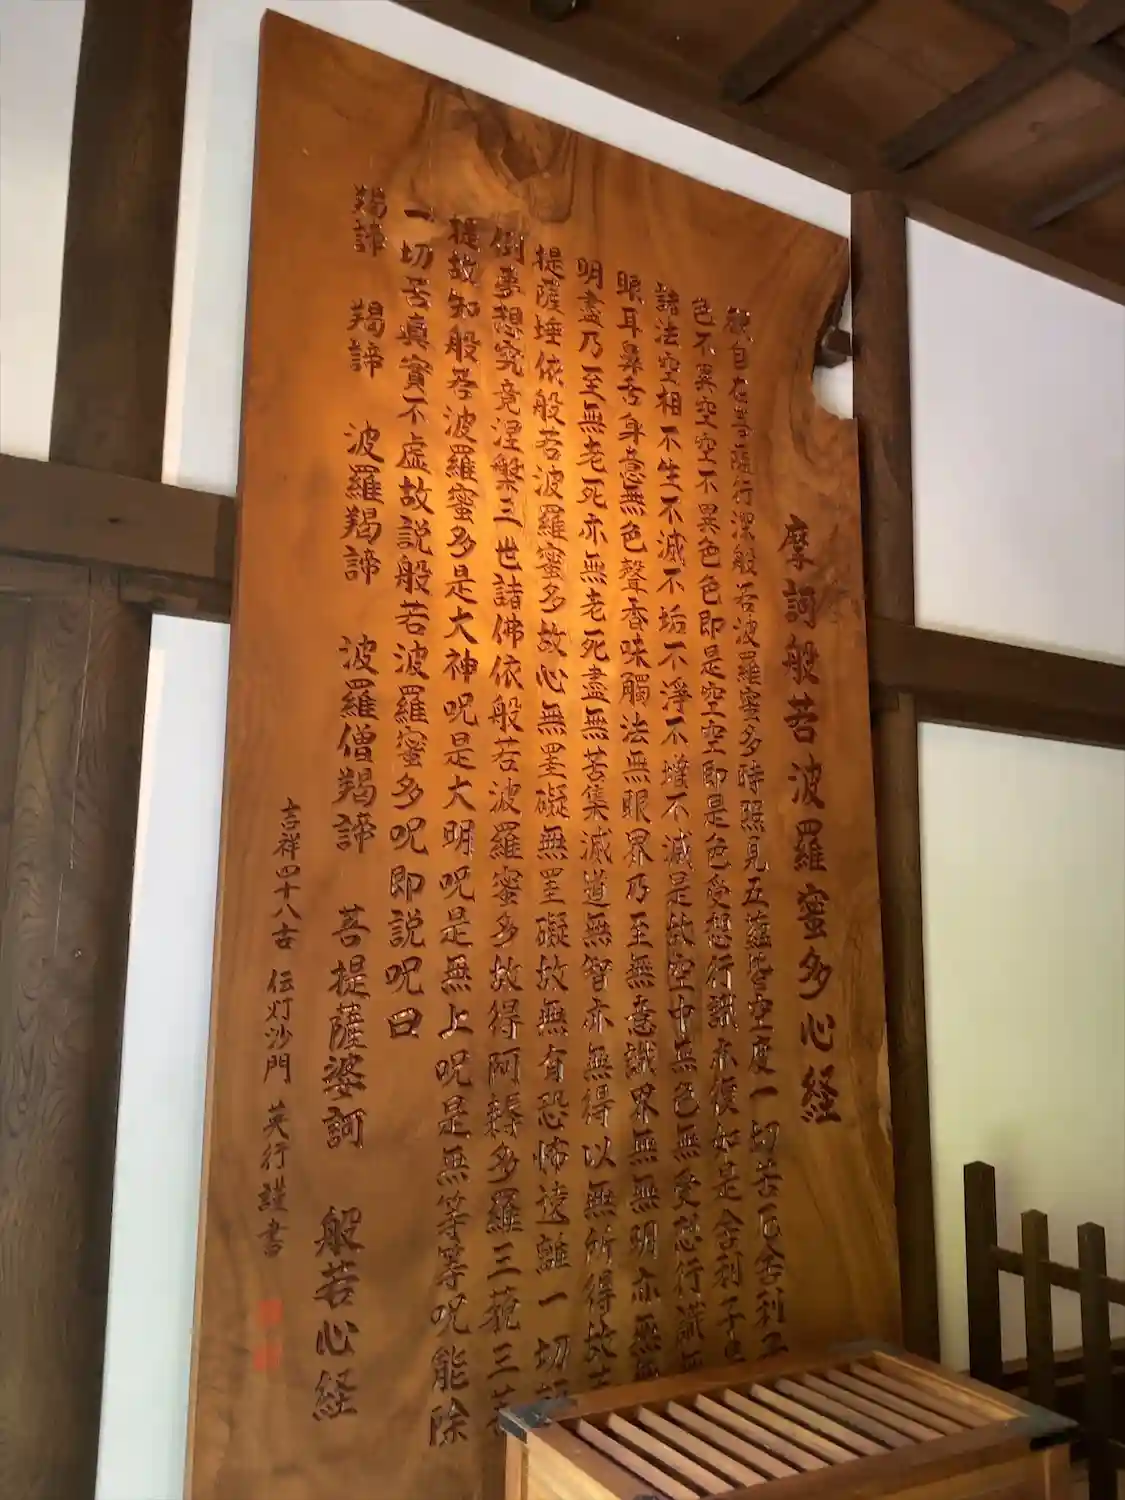 摩訶般若波羅蜜多心経
観自在菩薩行深般若波羅蜜多時照見五蘊皆空度一切苦厄舎利子
色不異空空不異色色即是空空即是色受想行識亦復如是舎利子是
諸法空相不生不滅不垢不淨不增不減是故空中無色無受想行識無
眼耳鼻舌身意無色聲香味觸法無眼界乃至無意識界無無明亦無無
明盡乃至無老死亦無老死盡無苦集滅道無智亦無得以無所得故菩
提薩埵依般若波羅蜜多故心無罣礙無罣礙故無有恐怖遠離一切顛
倒夢想究竟涅槃三世諸佛依般若波羅蜜多故得阿耨多羅三藐三菩
提故知般若波羅蜜多是大神呪是大明呪是無上呪是無等等呪能除
一切苦真實不虚故説般若波羅蜜多呪即説呪曰
羯諦 羯諦 波羅羯諦 波羅僧羯諦 菩提薩婆訶 般若心経
吉祥四十八古 伝灯沙門 英行謹書